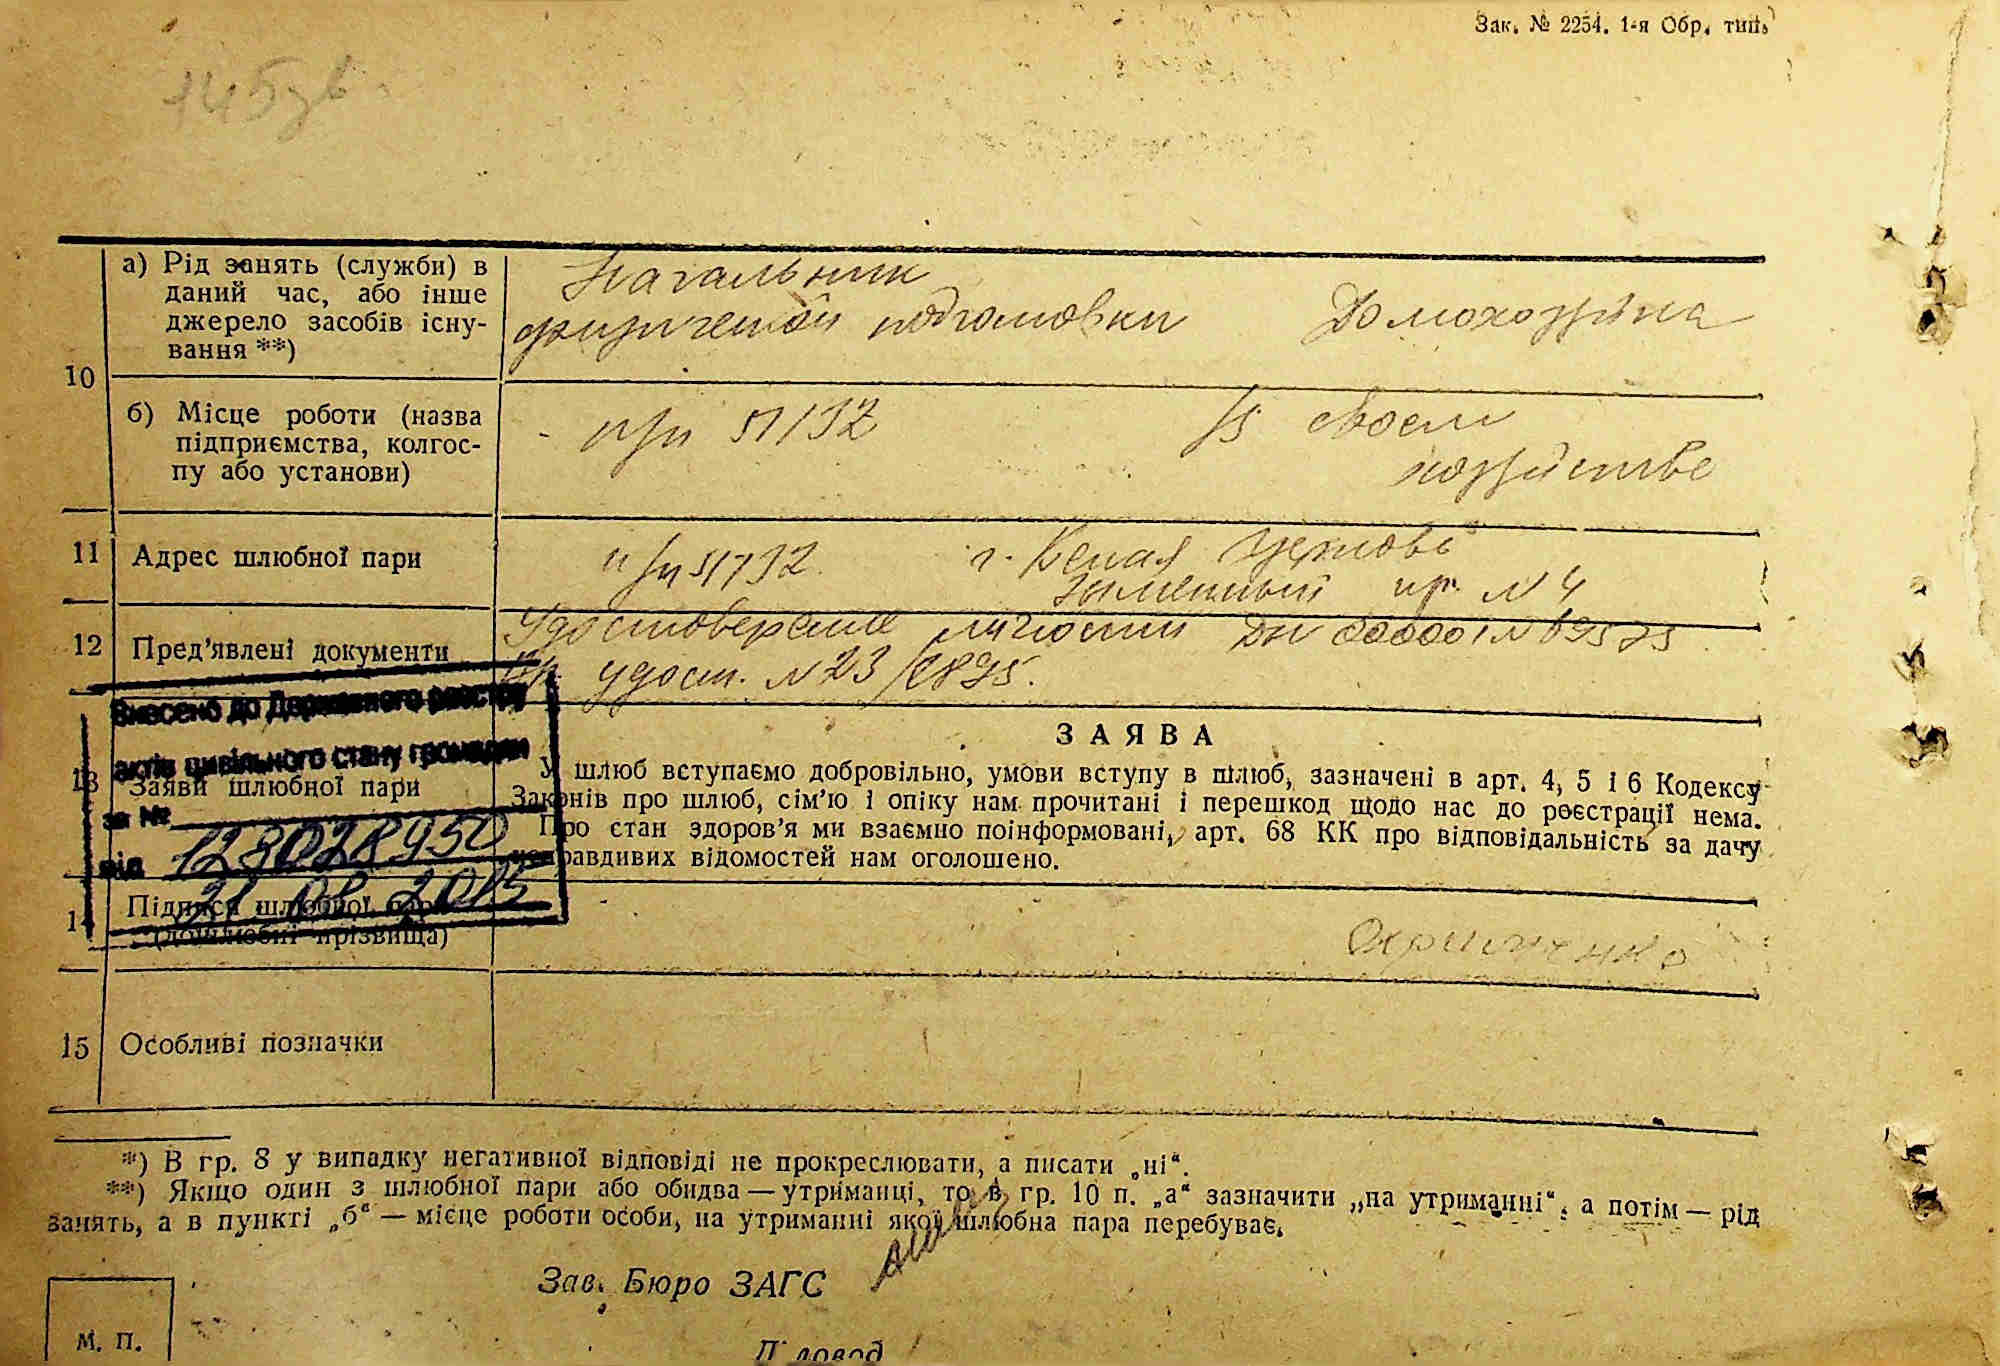 Зак. № 2254. 1-я Обр. тип.
10
а) Рід занять (служби) в
даний час, або інше
джерело засобів існу-
вання **)
Начальник
физической подготовки
Домохозяйка
б) Місце роботи (назва
підприємства, колгос-
пу або установи)
- п/п 51732
В своем
хозяйстве
11
Адрес шлюбної пари
п/п 51732.
г. Белая Церковь
пер. № 4
12
Пред'явлені документи
Удостоверение личности
удост. № 23/
Внесено до Державного реєстру
актів цивільного стану громадян
за №
від
21 08 2015
13
Заяви шлюбної пари
ЗАЯВА
У шлюб вступаємо добровільно, умови вступу в шлюб, зазначені в арт. 4, 5 і 6 Кодексу
Законів про шлюб, сім'ю і опіку нам прочитані і перешкод щодо нас до реєстрації нема.
Про стан здоров'я ми взаємно поінформовані, арт. 68 КК про відповідальність за дачу
неправдивих відомостей нам оголошено.
14
Підписи шлюбної пари
(дошлюбні прізвища)
15
Особливі позначки
*) В гр. 8 у випадку негативної відповіді не прокреслювати, а писати „ні“.
**) Якщо один з шлюбної пари або обидва — утриманці, то в гр. 10 п. „а“ зазначити „на утриманні“, а потім — рід
занять, а в пункті „б“ — місце роботи особи, на утриманні якої шлюбна пара перебуває.
Зав. Бюро ЗАГС
М. П.